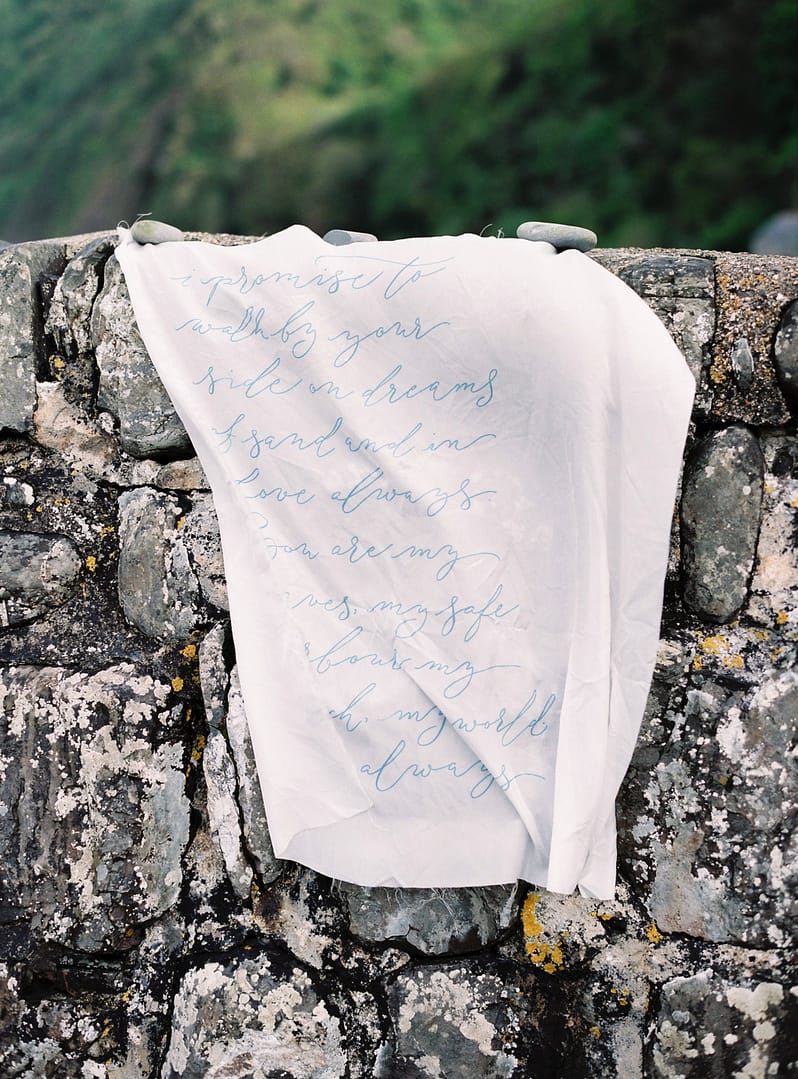 i promise to
walk by your
side on dreams
of sand and in
Love always
You are my
ves, my safe
rbour, my
h, my world
always